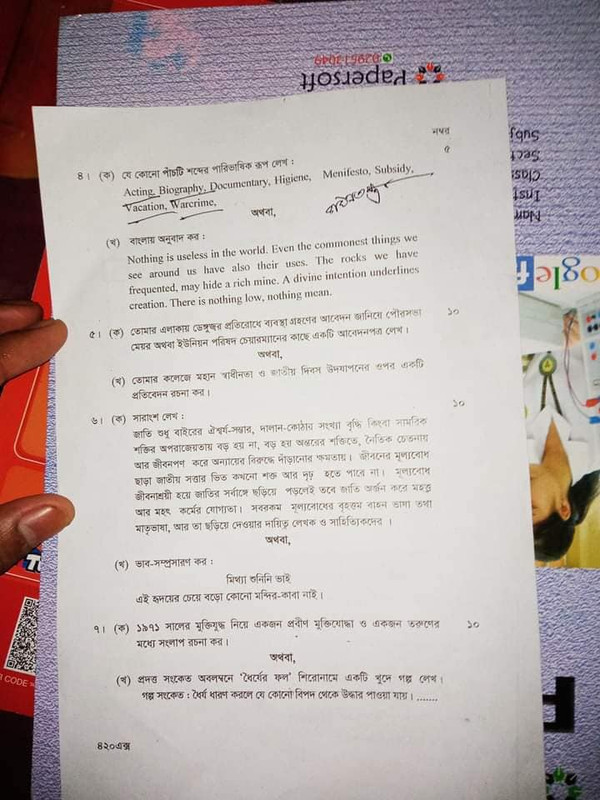 Papersoft
নম্বর
৪। (ক) যে কোনো পাঁচটি শব্দের পারিভাষিক রূপ লেখ :
৫
Acting, Biography, Documentary, Higiene, Menifesto, Subsidy,
Vacation, Warcrime,
অথবা,
(খ) বাংলায় অনুবাদ কর :
Nothing is useless in the world. Even the commonest things we
see around us have also their uses. The rocks we have
frequented, may hide a rich mine. A divine intention underlines
creation. There is nothing low, nothing mean.
৫। (ক) তোমার এলাকায় ডেঙ্গুজ্বর প্রতিরোধে ব্যবস্থা গ্রহণের আবেদন জানিয়ে পৌরসভা
১০
মেয়র অথবা ইউনিয়ন পরিষদ চেয়ারম্যানের কাছে একটি আবেদনপত্র লেখ।
অথবা,
(খ) তোমার কলেজে মহান স্বাধীনতা ও জাতীয় দিবস উদযাপনের ওপর একটি
প্রতিবেদন রচনা কর।
৬। (ক) সারাংশ লেখ :
১০
জাতি শুধু বাইরের ঐশ্বর্য-সম্ভার, দালান-কোঠার সংখ্যা বৃদ্ধি কিংবা সামরিক
শক্তির অপরাজেয়তায় বড় হয় না, বড় হয় অন্তরের শক্তিতে, নৈতিক চেতনায়
আর জীবনপণ করে অন্যায়ের বিরুদ্ধে দাঁড়ানোর ক্ষমতায়। জীবনের মূল্যবোধ
ছাড়া জাতীয় সত্তার ভিত কখনো শক্ত আর দৃঢ় হতে পারে না। মূল্যবোধ
জীবনাশ্রয়ী হয়ে জাতির সর্বাঙ্গে ছড়িয়ে পড়লেই তবে জাতি অর্জন করে মহত্ত্ব
আর মহৎ কর্মের যোগ্যতা। সবরকম মূল্যবোধের বৃহত্তম বাহন ভাষা তথা
মাতৃভাষা, আর তা ছড়িয়ে দেওয়ার দায়িত্ব লেখক ও সাহিত্যিকদের ।
অথবা,
(খ) ভাব-সম্প্রসারণ কর :
মিথ্যা শুনিনি ভাই
এই হৃদয়ের চেয়ে বড়ো কোনো মন্দির-কাবা নাই।
৭। (ক) ১৯৭১ সালের মুক্তিযুদ্ধ নিয়ে একজন প্রবীণ মুক্তিযোদ্ধা ও একজন তরুণের
১০
মধ্যে সংলাপ রচনা কর।
অথবা,
(খ) প্রদত্ত সংকেত অবলম্বনে ‘ধৈর্যের ফল’ শিরোনামে একটি খুদে গল্প লেখ।
গল্প সংকেত : ধৈর্য ধারণ করলে যে কোনো বিপদ থেকে উদ্ধার পাওয়া যায়। .......
৪২০এক্স